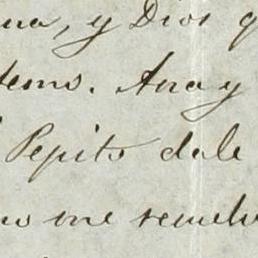 ma, y Dios q
temo. Ana y
Pepito dale
no me resuelv